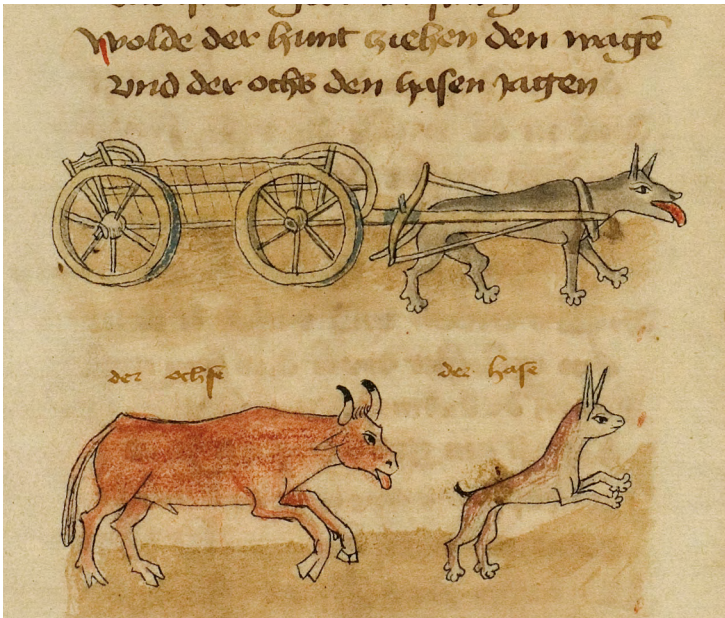 wolde der hunt ziehen den wagē
vnd der ochs den hasen jagen
der ochse
der hase